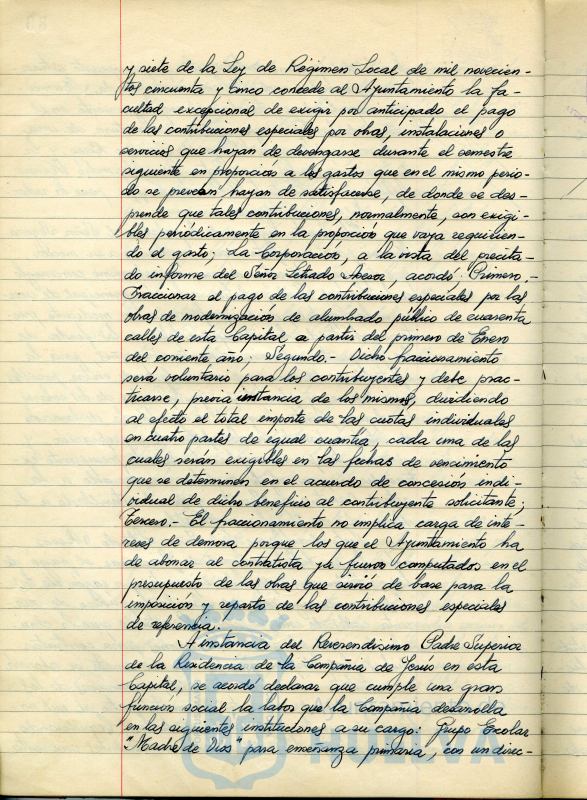 y siete de la Ley de Régimen Local de mil novecien-
tos cincuenta y cinco concede al Ayuntamiento la fa-
cultad excepcional de exigir por anticipado el pago
de las contribuciones especiales por obras, instalaciones o
servicios que hayan de devengarse durante el semestre
siguiente en proporción a los gastos que en el mismo perio-
do se prevean hayan de satisfacerse, de donde se des-
prende que tales contribuciones, normalmente, son exigi-
bles periódicamente en la proporción que vaya requirien-
do el gasto; la Corporación, a la vista del precita-
do informe del Señor Letrado Asesor, acordó: Primero.-
Fraccionar el pago de las contribuciones especiales por las
obras de modernización de alumbrado público de cuarenta
calles de esta Capital a partir del primero de Enero
del corriente año; Segundo.- Dicho fraccionamiento
será voluntario para los contribuyentes y debe prac-
ticarse, previa instancia de los mismos, dividiendo
al efecto el total importe de las cuotas individuales
en cuatro partes de igual cuantía, cada una de las
cuales serán exigibles en las fechas de vencimiento
que se determinen en el acuerdo de concesión indi-
vidual de dicho beneficio al contribuyente solicitante;
Tercero.- El fraccionamiento no implica carga de inte-
reses de demora porque los que el Ayuntamiento ha
de abonar al contratista ya fueron computados en el
presupuesto de las obras que sirvió de base para la
imposición y reparto de las contribuciones especiales
de referencia.
A instancia del Reverendísimo Padre Superior
de la Residencia de la Compañía de Jesús en esta
Capital, se acordó declarar que cumple una gran
función social la labor que la Compañía desarrolla
en las siguientes instituciones a su cargo: Grupo Escolar
"Madre de Dios" para enseñanza primaria, con un direc-